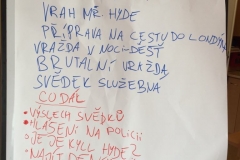 VRAH MR HYDE
PŘÍPRAVA NA CESTU DO LONDÝNA
VRAŽDA V NOCI-DĚŠŤ
BRUTÁLNÍ VRAŽDA
SVĚDEK SLUŽEBNÁ
CO DÁL
• VÝSLECH SVĚDKŮ
• HLÁŠENÍ NA POLICII
• JE JEKYLL HYDE?
NAJÍT